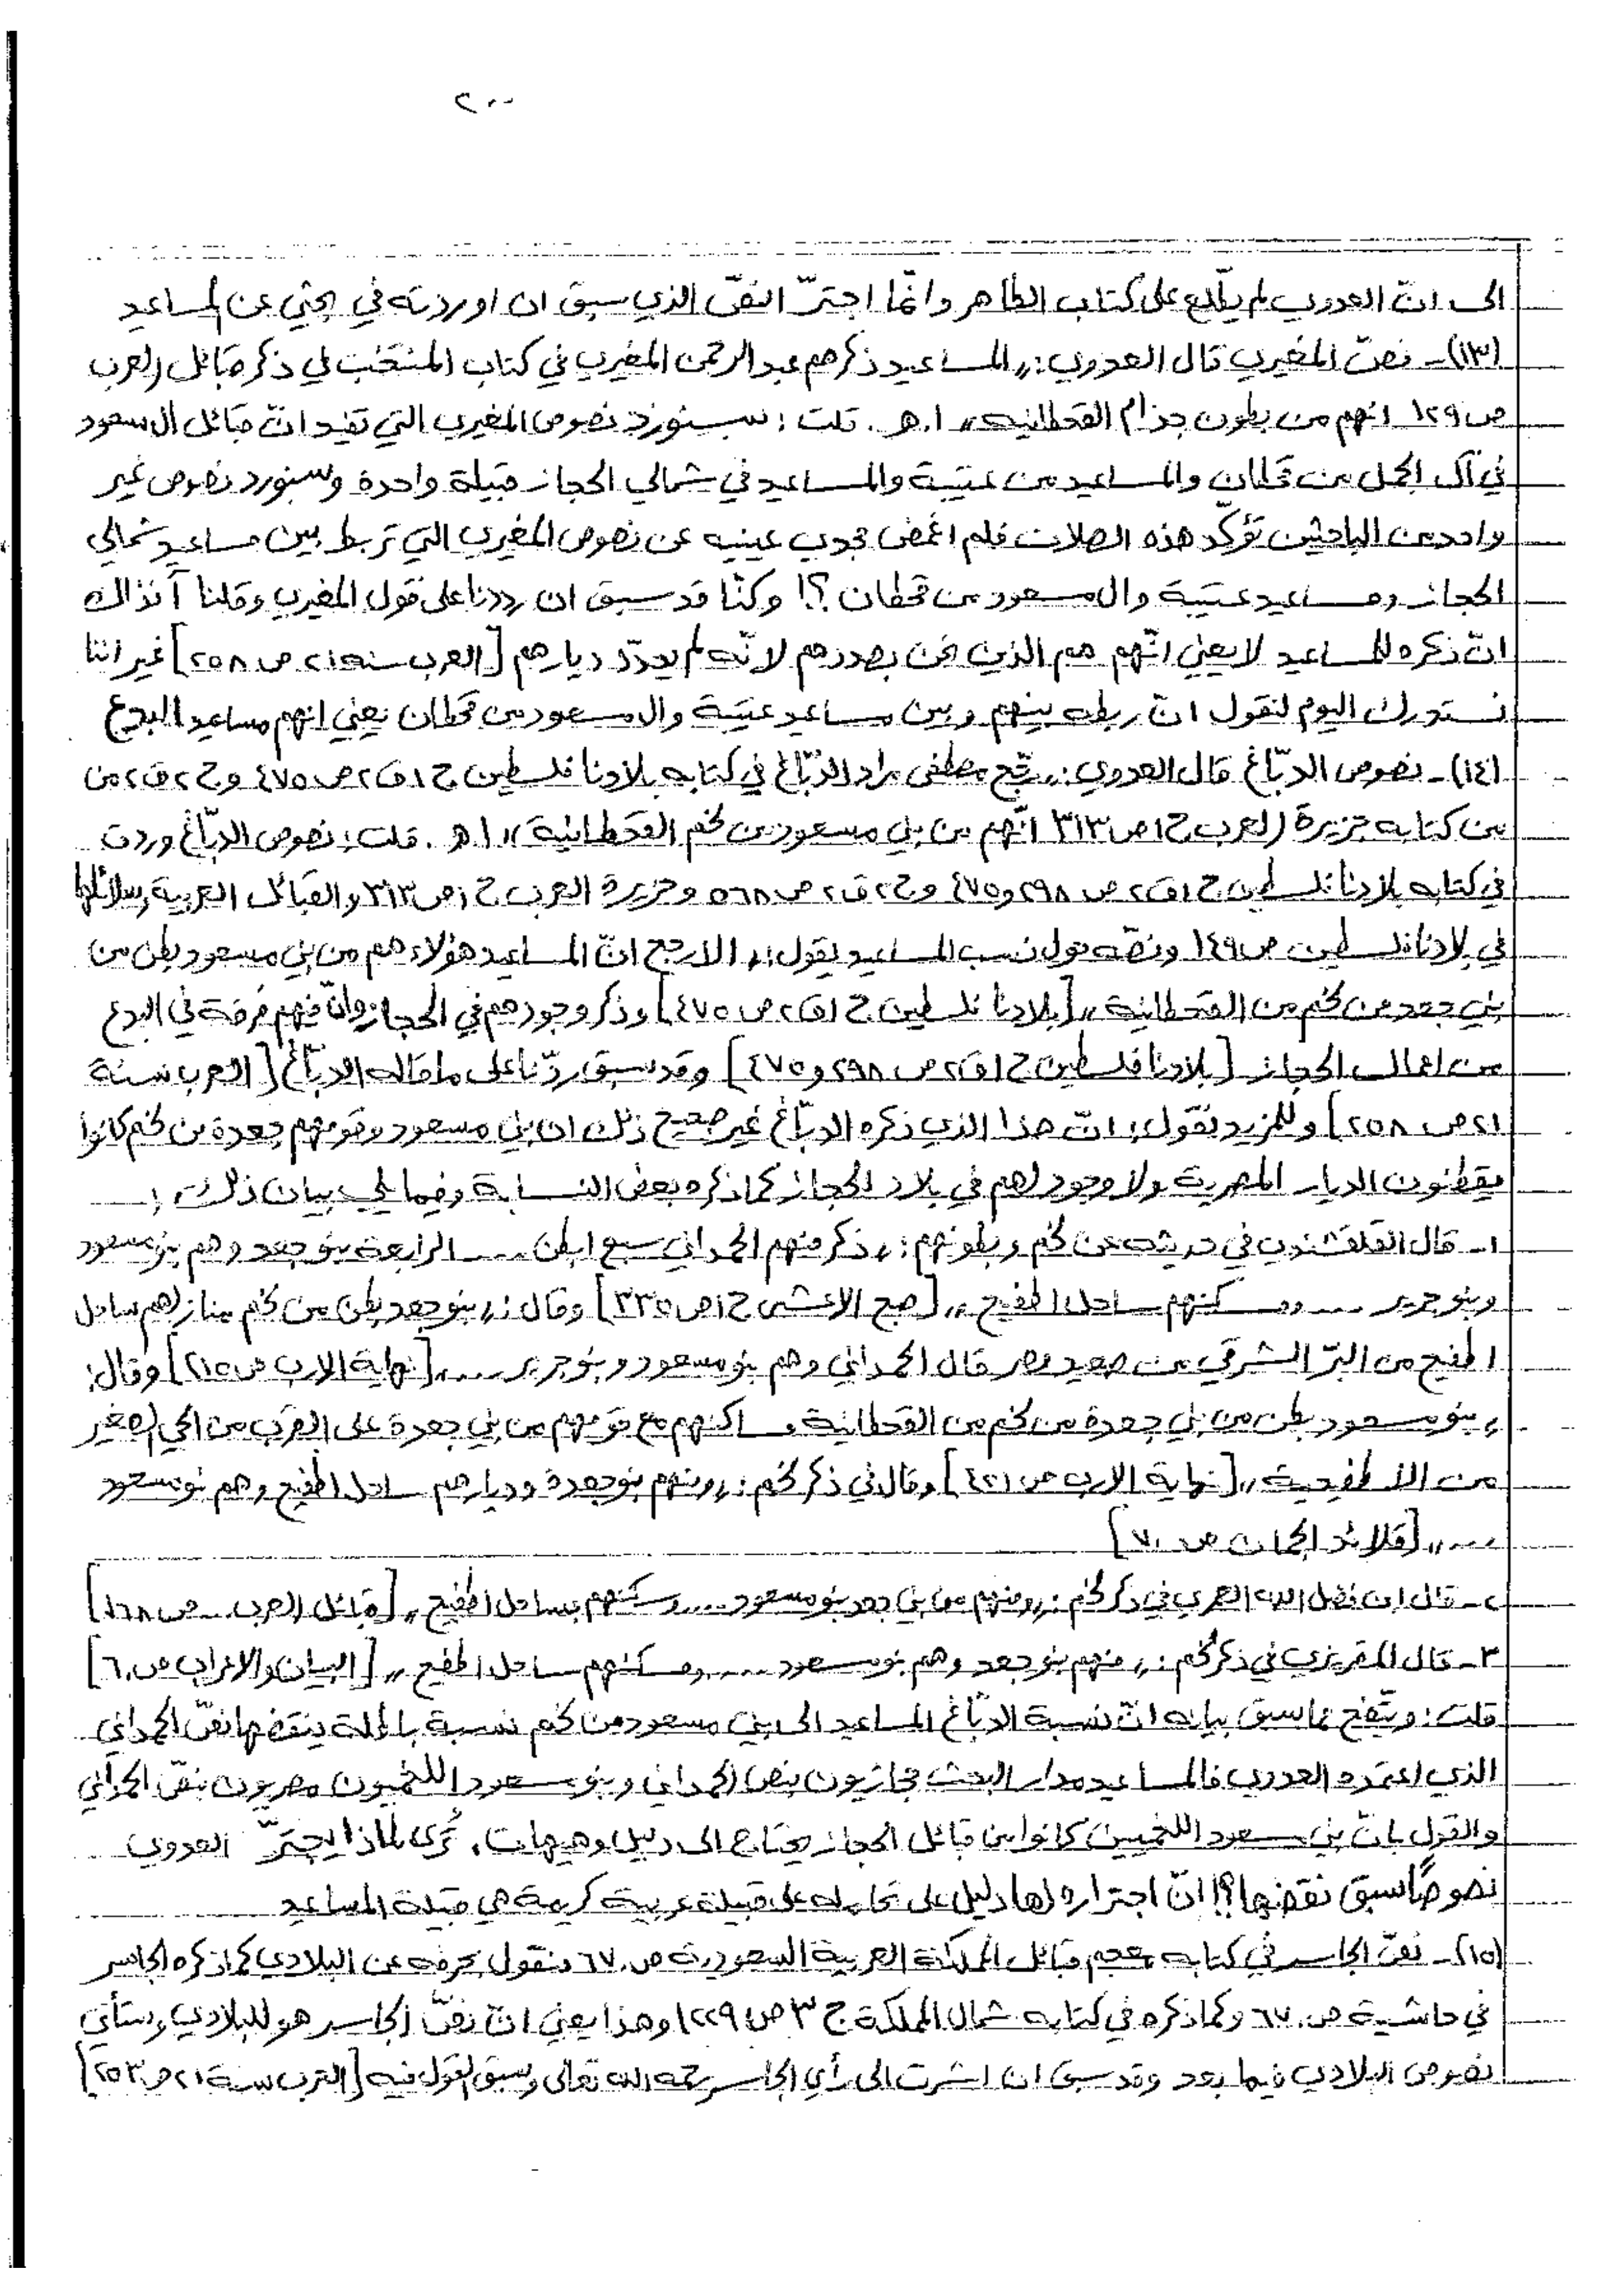 ٢٠٠
الى انّ العدوي لم يطّلع على كتاب الطاهر وانّما اجترّ النصّ الذي سبق ان اوردته في بحثي عن المساعيد
(١٣)- نصّ المغيري قال العدوي: ,, المساعيد ذكرهم عبد الرحمن المغيري في كتاب المنتخب في ذكر قبائل العرب
ص ١٢٩ انهم من بطون جذام القحطانية ,, ا.هـ. قلت: سنورد نصوص المغيري التي تفيد انّ قبائل ال سعود
في آل الجمل من قحطان والمساعيد من عتيبة والمساعيد في شمالي الحجاز قبيلة واحدة وسنورد نصوص غير
واحد من الباحثين تؤكّد هذه الصلات فلم اغمض مجدي عينيه عن نصوص المغيري التي تربط بين مساعيد شمالي
الحجاز ومساعيد عتيبة وال مسعود من قحطان ؟! وكنّا قد سبق ان رددنا على قول المغيري وقلنا آنذاك
انّ ذكره للمساعيد لا يعني انّهم هم الذين نحن بصددهم لانّه لم يحدّد ديارهم [العرب سنة ٢١ ص ٢٥٨] غير اننا
نستدرك اليوم لنقول انّ ربطه بينهم وبين مساعيد عتيبة وال مسعود من قحطان يعني انهم مساعيد البدع
(١٤)- نصوص الدبّاغ قال العدوي: ,, رجّح مصطفى مراد الدبّاغ في كتابه بلادنا فلسطين ج ١ ق ٢ ص ٤٧٥ وج ٢ ق ٢ من
من كتابه جزيرة العرب ج ١ ص ٣١٣ انّهم من بني مسعود من لخم القحطانية ,, ا.هـ. قلت: نصوص الدبّاغ وردت
في كتابه بلادنا فلسطين ج ١ ق ٢ ص ٢٩٨ و ٤٧٥ وج ٢ ق ٢ ص ٥٦٨ وجزيرة العرب ج ١ ص ٣١٣ والقبائل العربية وسلائلها
في بلادنا فلسطين ص ١٤٩ ونصّه حول نسب المساعيد يقول: ,, الارجح انّ المساعيد هؤلاء هم من بني مسعود بطن من
بني جعد من لخم من القحطانية ,, [بلادنا فلسطين ج ١ ق ٢ ص ٤٧٥] وذكر وجودهم في الحجاز وانّ فيهم فرقة في البدع
من اعمال الحجاز [بلادنا فلسطين ج ١ ق ٢ ص ٢٩٨ و ٤٧٥] وقد سبق ردّنا على ما قاله الدبّاغ [العرب سنة
٢١ ص ٢٥٨] وللمزيد نقول: انّ هذا الذي ذكره الدبّاغ غير صحيح ذلك ان بني مسعود وقومهم جعدة من لخم كانوا
يقطنون الديار المصرية ولا وجود لهم في بلاد الحجاز كما ذكره بعض النسابة وفيما يلي بيان ذلك :
١- قال القلقشندي في حديثه عن لخم وبطونهم: ,, ذكر منهم الحمداني سبع ابطن .... الرابعة بنو جعد وهم بنو مسعود
وبنو جرير .... ومسكنهم ساحل اطفيح ,, [صبح الاعشى ج ١ ص ٣٣٥] وقال: ,, بنو جعد بطن من لخم منازلهم ساحل
اطفيح من البرّ الشرقي من صعيد مصر قال الحمداني وهم بنو مسعود وبنو جرير .... ,, [نهاية الارب ص ٢١٥] وقال:
,, بنو مسعود بطن من بني جعدة من لخم من القحطانية مساكنهم مع قومهم من بني جعدة على القرب من الحي الصغير
من الاطفيحية ,, [نهاية الارب ص ٤٢١] وقال في ذكر لخم: ,, ومنهم بنو جعدة وديارهم ساحل اطفيح وهم بنو مسعود
.... ,, [قلائد الجمان ص ٧٠]
٢- قال ابن فضل الله العمري في ذكر لخم: ,, ومنهم من بني جعد بنو مسعود .... ومسكنهم بساحل اطفيح ,, [قبائل العرب ص ١٦٨]
٣- قال المقريزي في ذكر لخم: ,, منهم بنو جعد وهم بنو مسعود .... ومسكنهم ساحل اطفيح ,, [البيان والاعراب ص ٦٠]
قلت: ويتّضح ممّا سبق بيانه انّ نسبة الدبّاغ المساعيد الى بني مسعود من لخم نسبة باطلة ينقضها نصّ الحمداني
الذي اعتمده العدوي فالمساعيد مدار البحث حجازيون بنص الحمداني وبنو مسعود اللخميون مصريون بنصّ الحمداني
والقول بانّ بني مسعود اللخميين كانوا من قبائل الحجاز يحتاج الى دليل وهيهات. تُرى لماذا يجترّ العدوي
نصوصًا سبق نقضها؟! انّ اجتراره لها دليل على تحامله على قبيلة عربية كريمة هي قبيلة المساعيد
(١٥)- نصّ الجاسر في كتابه معجم قبائل المملكة العربية السعودية ص ٦٧٠ منقول بحرفه عن البلادي كما ذكره الجاسر
في حاشية ص ٦٧٠ وكما ذكره في كتابه شمال المملكة ج ٣ ص ١٢٢٩ وهذا يعني انّ نصّ الجاسر هو للبلادي وستأتي
نصوص البلادي فيما بعد وقد سبق ان اشرت الى رأي الجاسر رحمه الله تعالى وسبق القول فيه [العرب سنة ٢١ ص ٢٥٣]